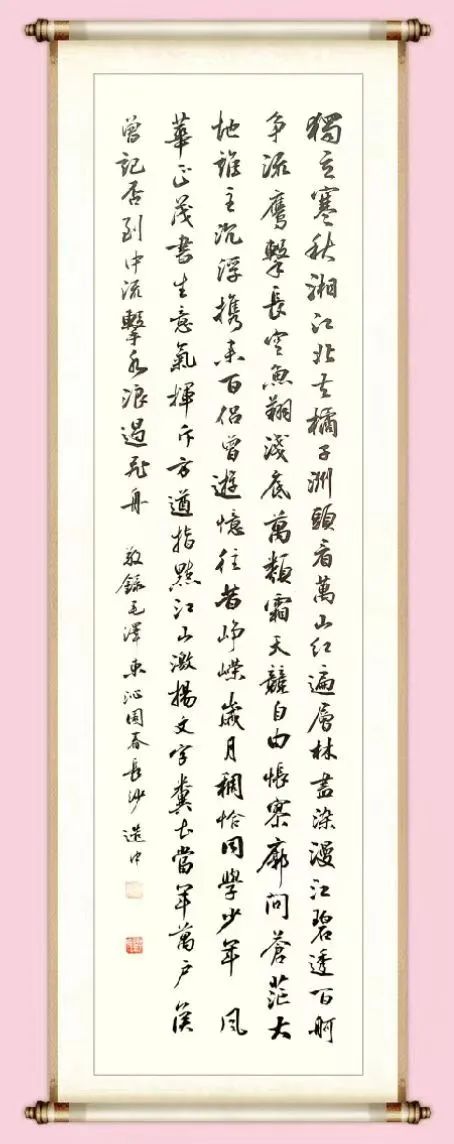 獨立寒秋湘江北去橘子洲頭看萬山红遍層林盡染漫江碧透百舸
争流鷹擊長空魚翔淺底萬類霜天競自由悵寥廓問蒼茫大
地誰主沉浮携来百侶曾遊憶往昔崢嶸歲月稠恰同學少年風
華正茂書生意氣揮斥方遒指點江山激揚文字糞土當年萬户侯
曾記否到中流擊水浪遏飛舟 敬錄毛澤東沁園春長沙